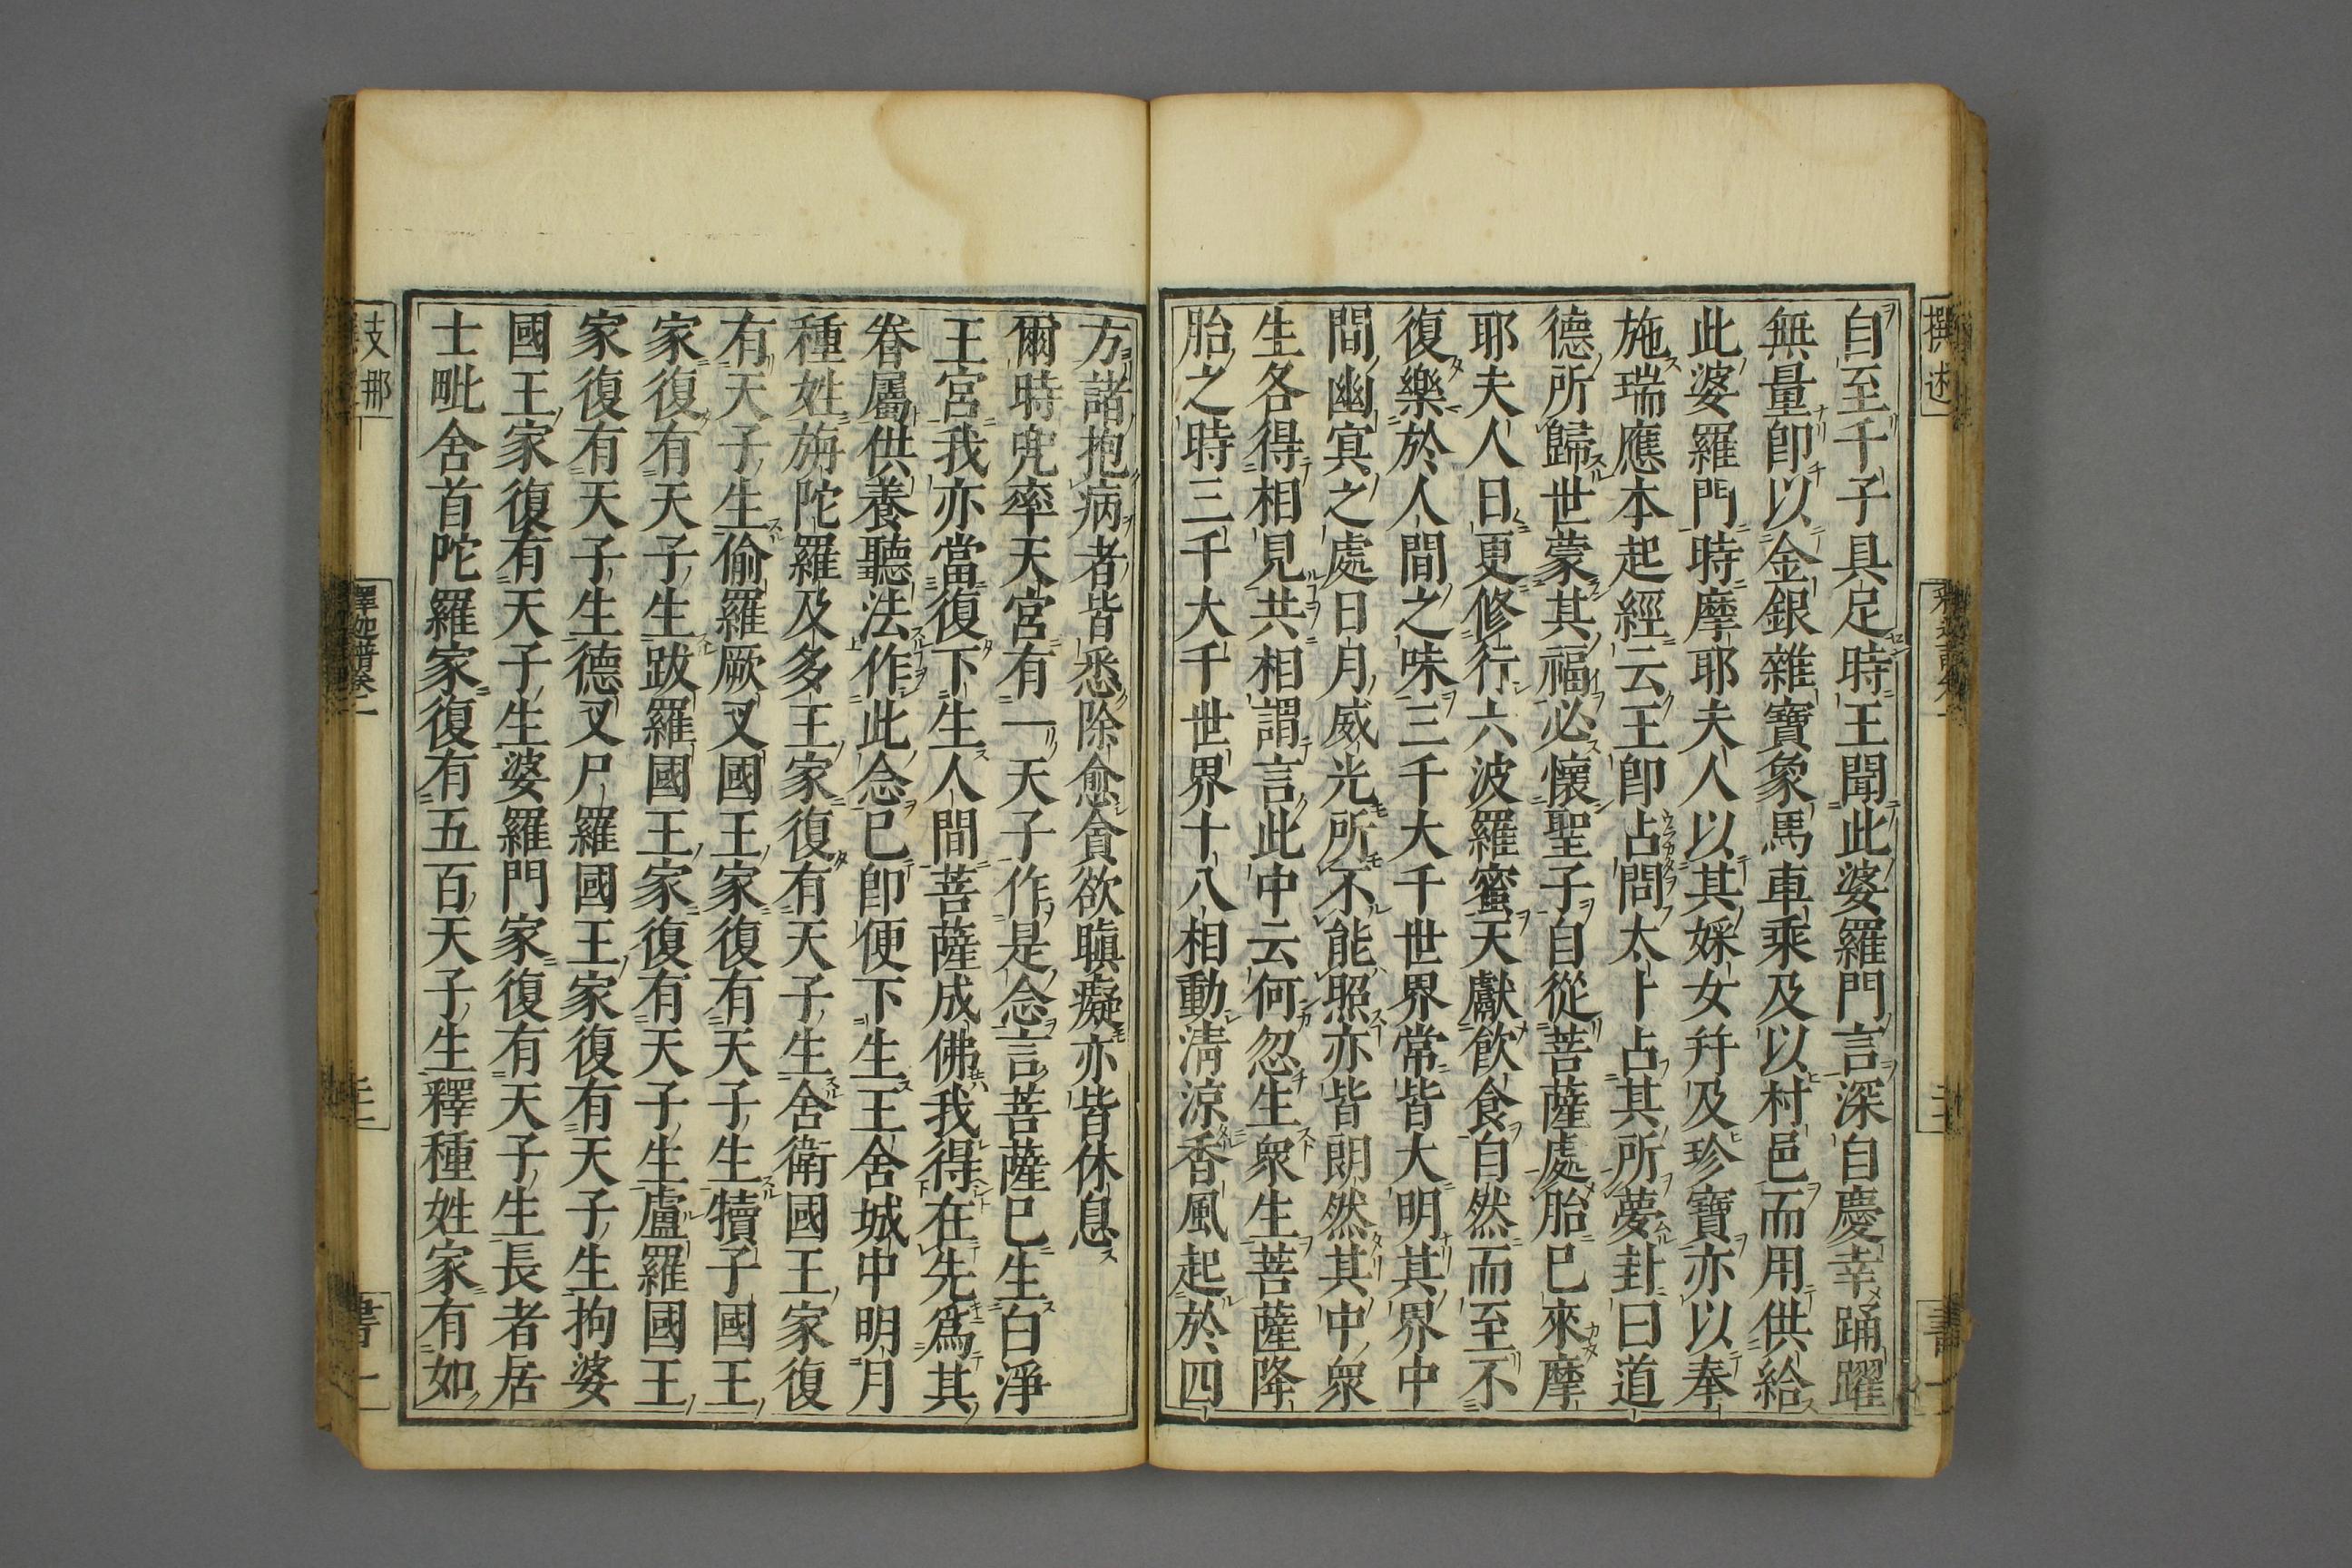 自至千子具足時王聞此婆羅門言深自慶幸踊躍
無量卽以金銀雜寶象馬車乘及以村邑而用供給
此婆羅門時摩耶夫人以其婇女幷及珍寶亦以奉
施瑞應本起經云王卽占問太卜占其所夢卦曰道
德所歸世蒙其福必懷聖子自從菩薩處胎已來摩
耶夫人日更修行六波羅蜜天獻飮食自然而至不
復樂於人間之味三千大千世界常皆大明其界中
間幽冥之處日月威光所不能照亦皆朗然其中衆
生各得相見共相謂言此中云何忽生衆生菩薩降
胎之時三千大千世界十八相動淸涼香風起於四
方諸抱病者皆悉除愈貪欲瞋癡亦皆休息
爾時兜率天宮有一天子作是念言菩薩已生白淨
王宮我亦當復下生人間菩薩成佛我得在先爲其
眷屬供養聽法作此念已卽便下生王舍城中明月
種姓旃陀羅及多王家復有天子生舍衛國王家復
有天子生偷羅厥叉國王家復有天子生犢子國王
家復有天子生跋羅國王家復有天子生盧羅國王
家復有天子生德叉尸羅國王家復有天子生拘婆
國王家復有天子生婆羅門家復有天子生長者居
士毗舍首陀羅家復有五百天子生釋種姓家有如
撰述
支那
釋迦譜卷一